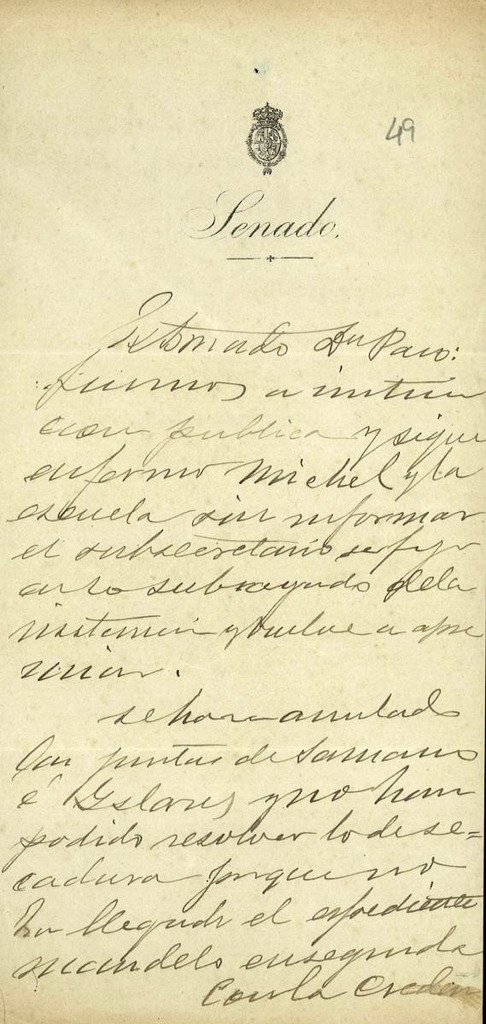 49
Senado.
Estimado Dn Paco:
fuimos a instruc
cion publica y sigue
enfermo Michel y la
escuela sin informar
el subsecretario se fijo
en lo subrayado de la
instancia y vuelve a apre
miar.
se han anulado
las juntas de Samano
é Islares y no han
podido resolver lo de se=
cadura porque no
ha llegado el espediente
mandelo enseguida
con la